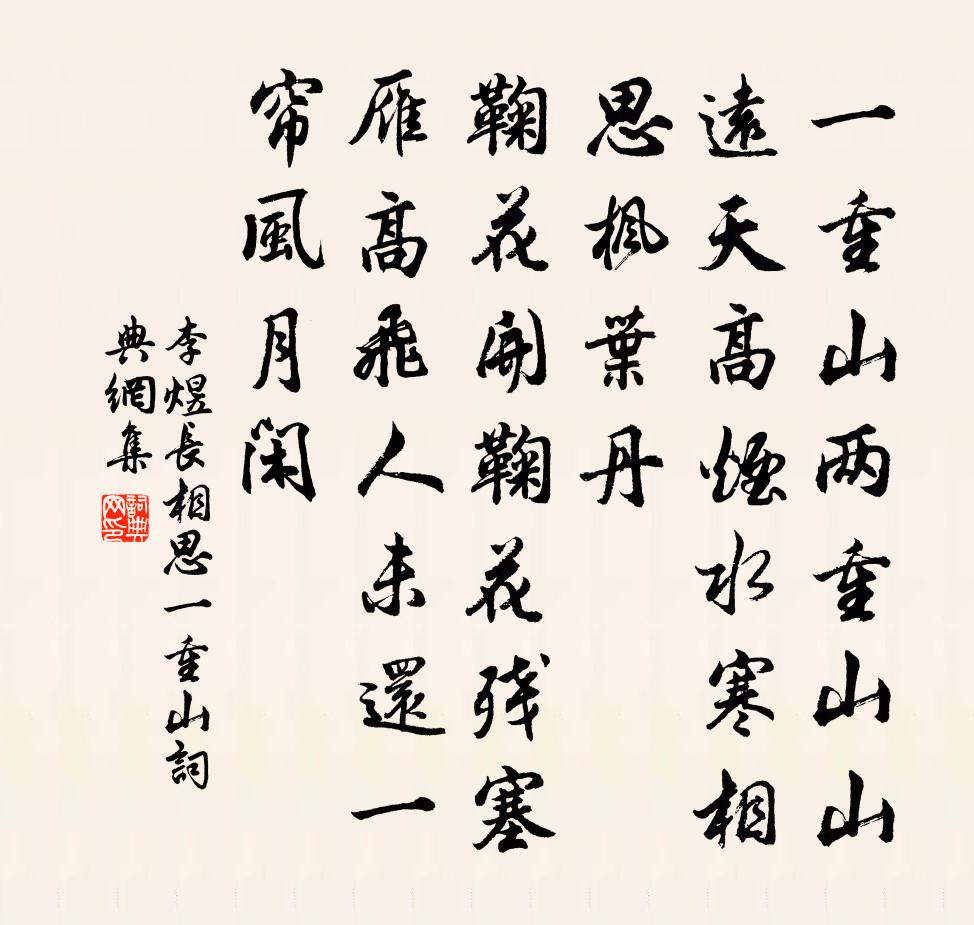 一重山两重山山
遠天高煙水寒相
思楓葉丹
鞠花開鞠花残塞
雁高飛人未還一
帘風月闲
李煜長相思一重山詞
典網集
詞典网印